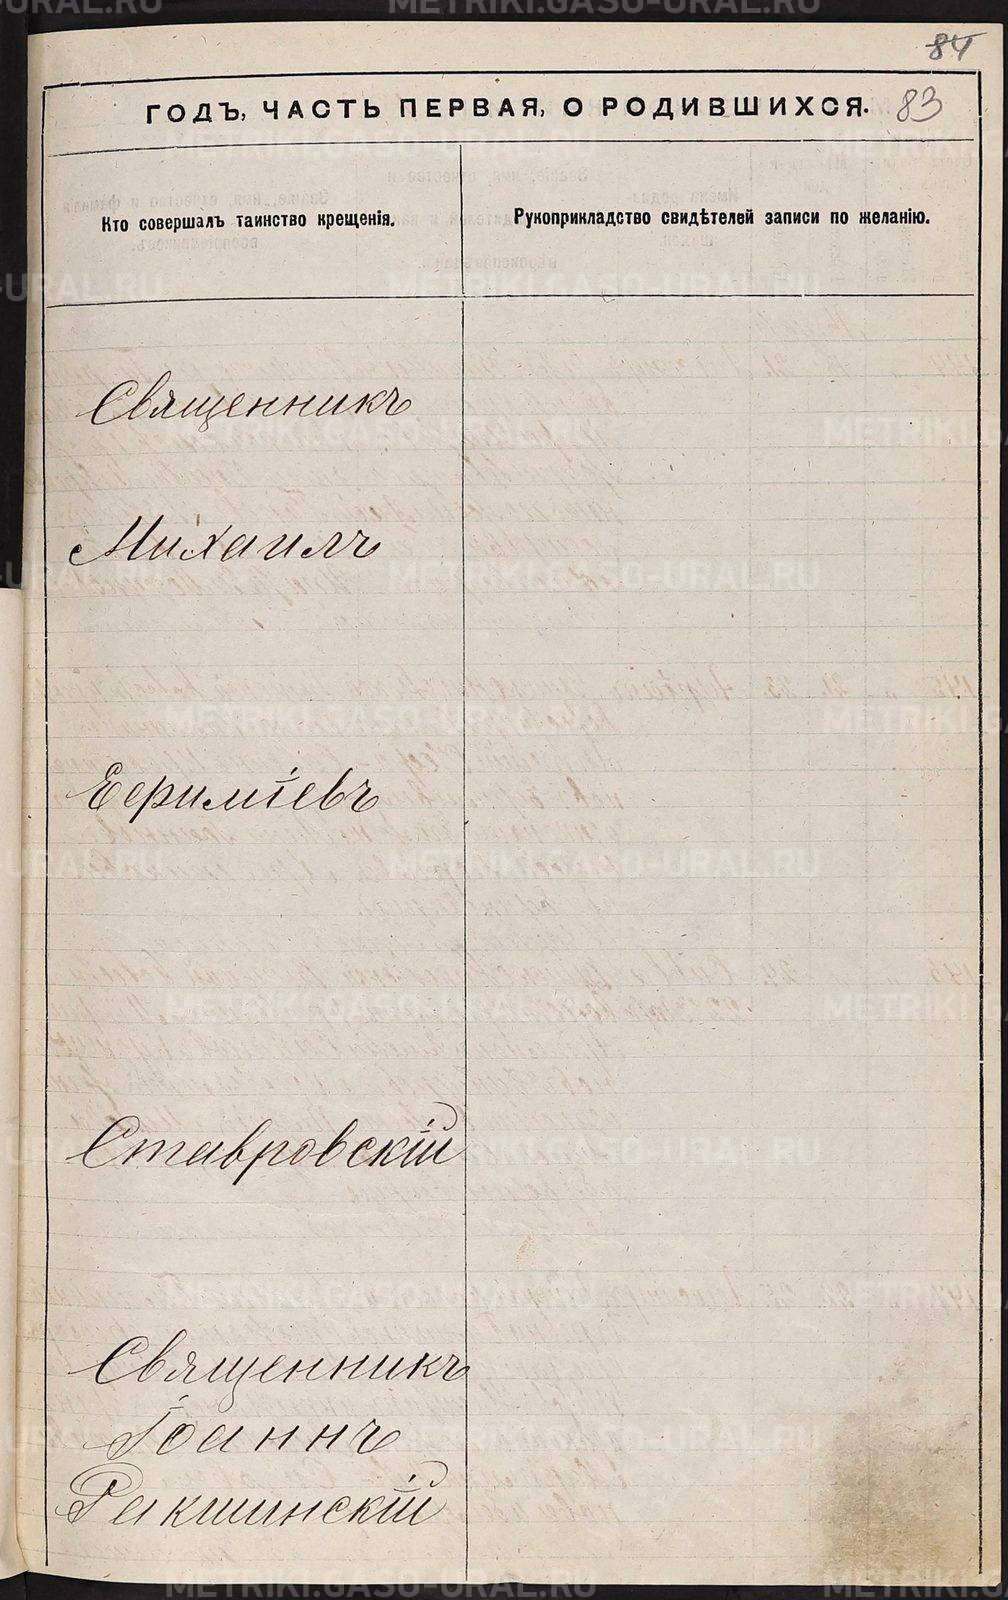 84
ГОДЪ, ЧАСТЬ ПЕРВАЯ, О РОДИВШИХСЯ. 83
Кто совершалъ таинство крещенія.
Рукоприкладство свидѣтелей записи по желанію.
Священникъ
Михаилъ
Ефимiевъ
Ставровскій
Священникъ
Іоаннъ
Ракшинскій
METRIKI.GASO-URAL.RU